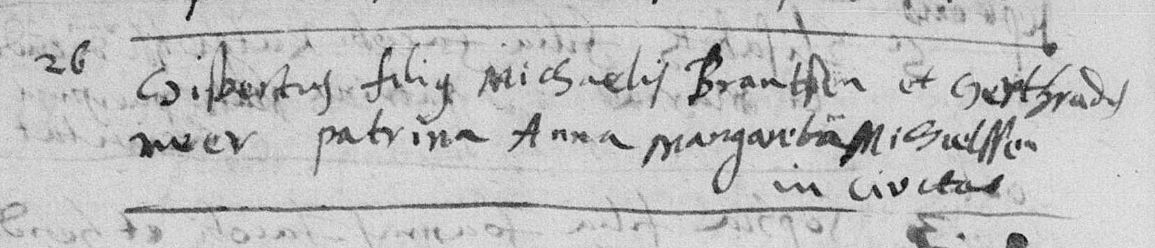 26 Gisbertus filius Michaelis Brantsen et Gerthrudis
meer patrina Anna margareta Michaelssen
in civitas